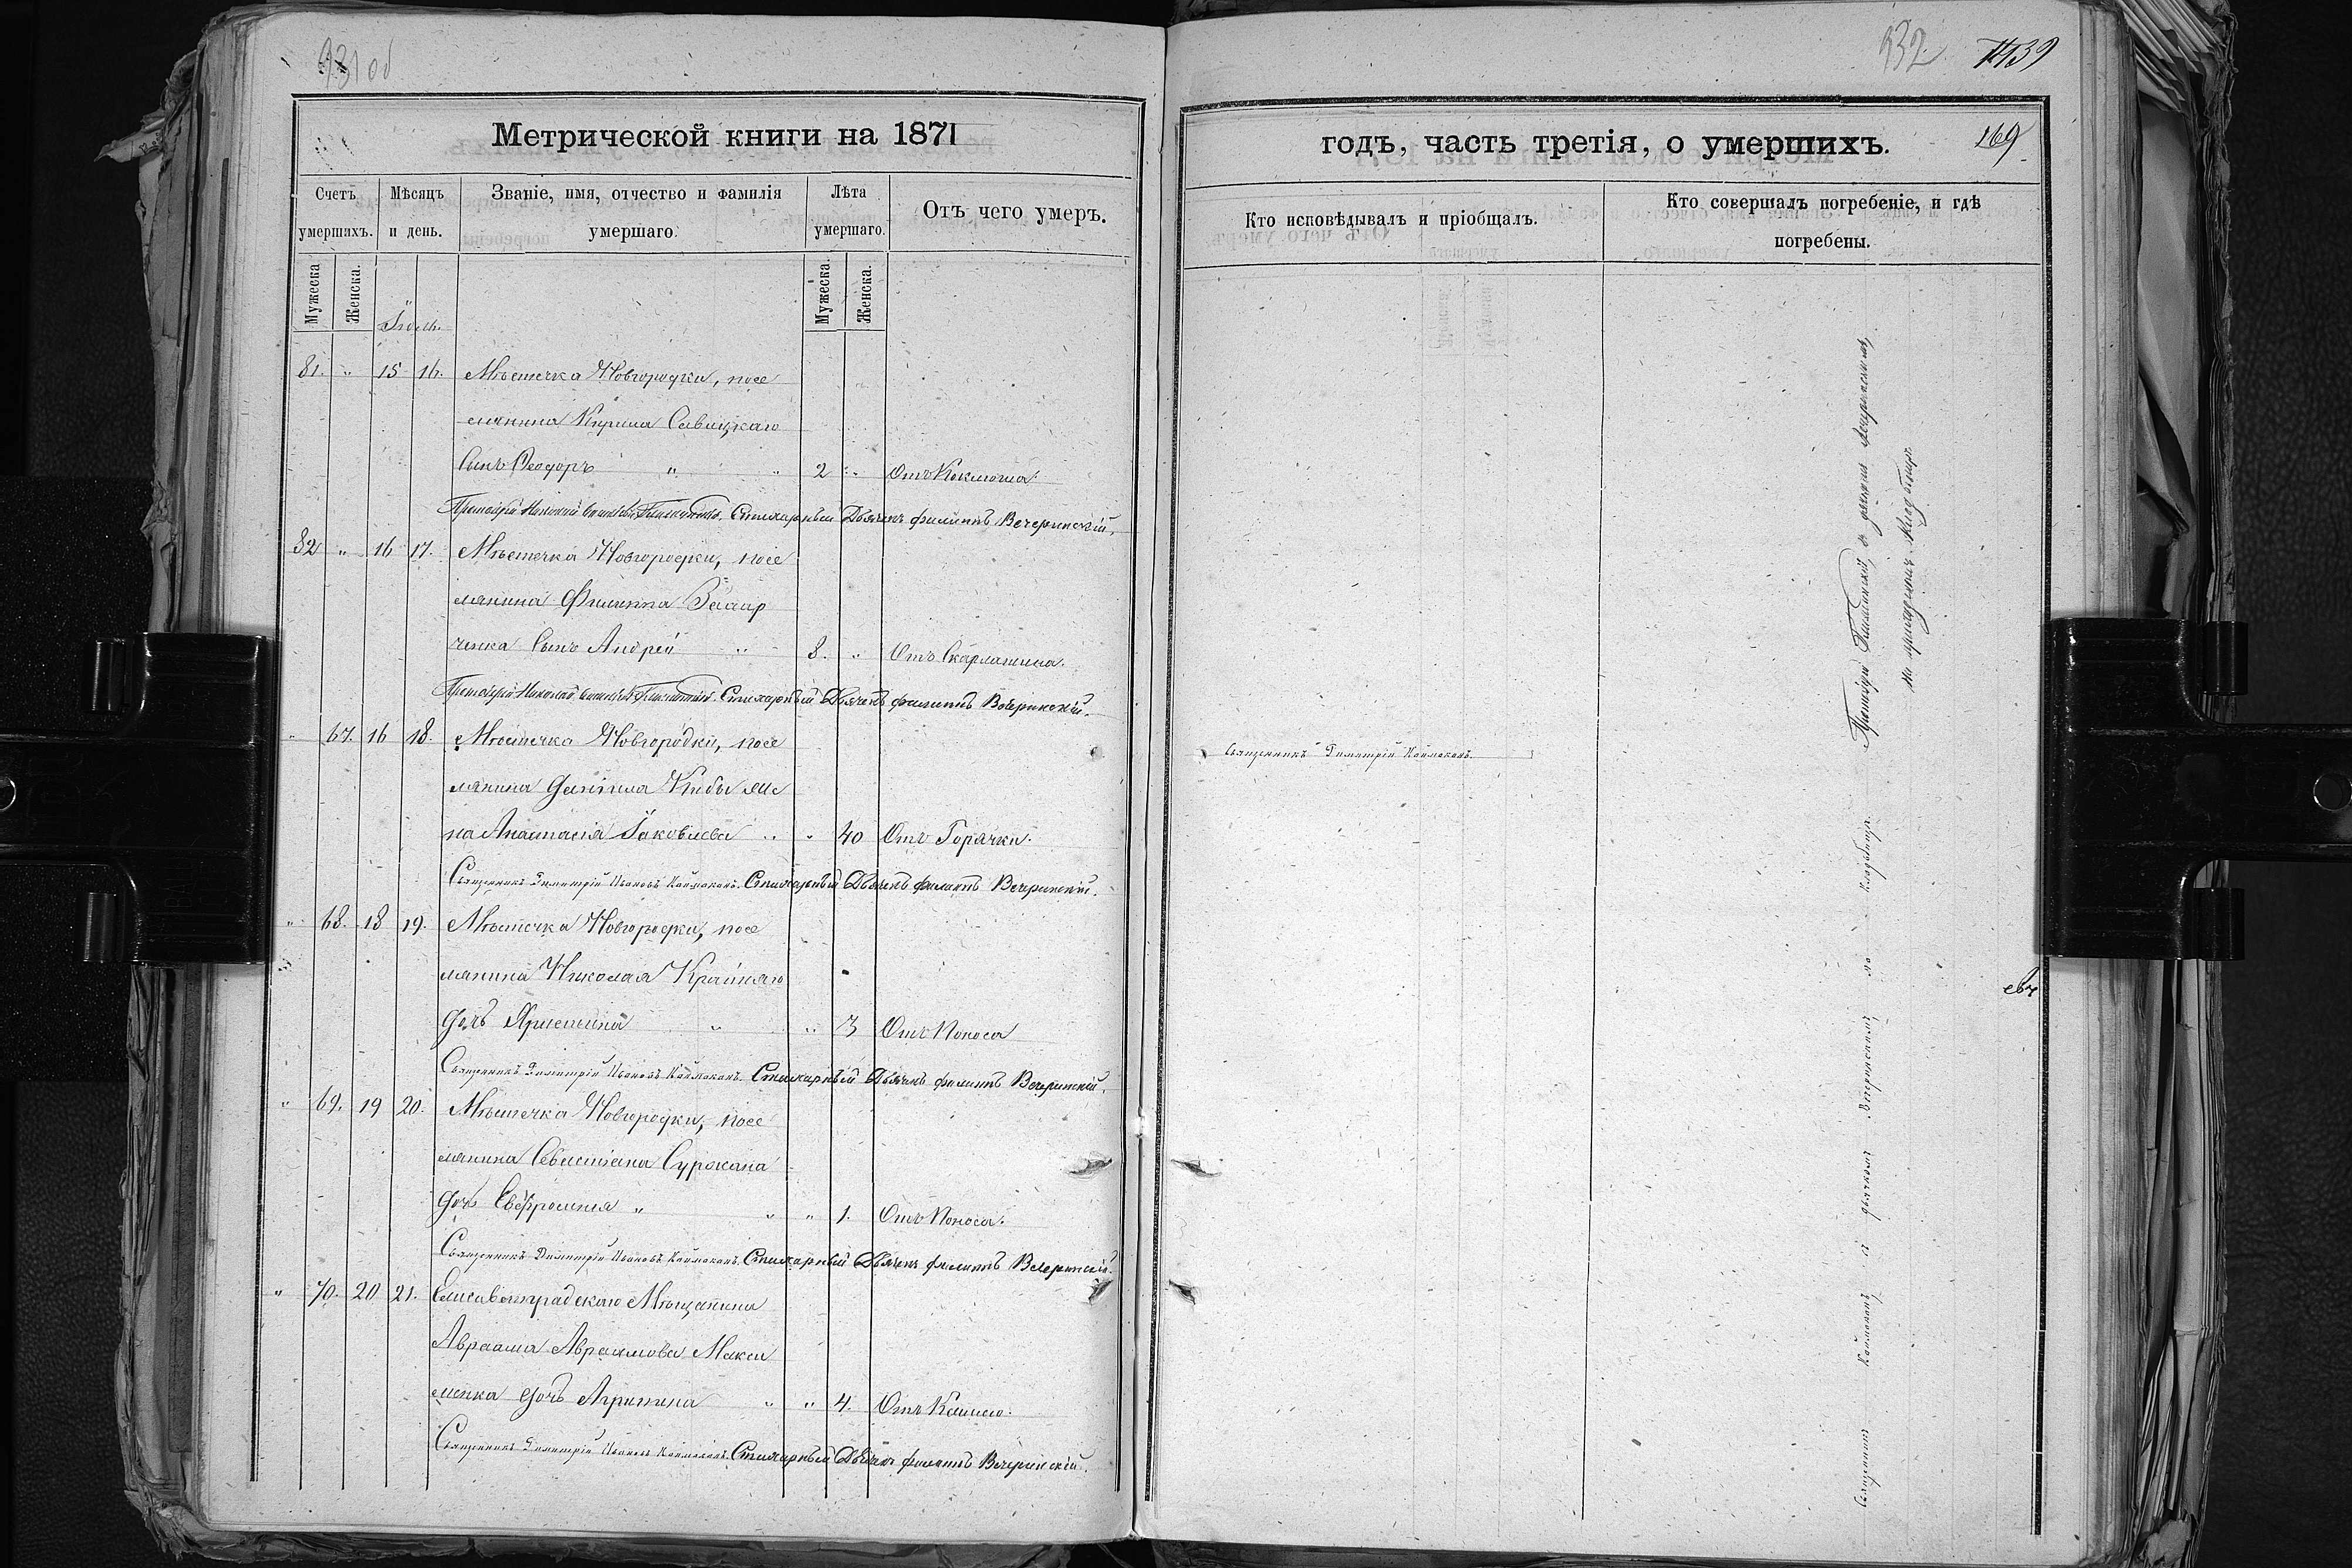 931 об
Метрической книги на 1871
Счетъ умершихъ.
Мѣсяцъ и день.
Званіе, имя, отчество и фамилія умершаго.
Лѣта умершаго.
Отъ чего умеръ.
Мужеска
Женска.
Мужеска.
Женска.
81. " 15 16. Мѣстечка Новгородки, посе
лянина Кирила Савицкаго
Сынъ Ѳеодоръ " " 2 " Отъ Коклюша.
Протоіерей Николай Стихарный Дьячекъ Филиппъ Вечеринскій.
82 " 16 17. Мѣстечка Новгородки, посе
лянина Филиппа
ченка Сынъ Андрей " 8. " Отъ Скарлатина.
Протоіерей Николай Стихарный Дьячекъ Филиппъ Вечеринскій.
" 67. 16 18. Мѣстечка Новгородки, посе
лянина Даніила Кибы же
на Анастасія Іаковлева " " 40 Отъ Горячки.
Священникъ Димитрій Ивановъ Каймаканъ. Стихарный Дьячекъ Филиппъ Вечеринскій.
" 68. 18 19. Мѣстечка Новгородки, посе
лянина Николая Крайняго
дочь Христина " " 3 Отъ Поноса
Священникъ Димитрій Ивановъ Каймаканъ. Стихарный Дьячекъ Филиппъ Вечеринскій.
" 69. 19 20. Мѣстечка Новгородки, посе
лянина Севастіана Суржана
дочь Евфросинія " " " 1. Отъ Поноса.
Священникъ Димитрій Ивановъ Каймаканъ. Стихарный Дьячекъ Филиппъ Вечеринскій.
" 70. 20 21. Елисаветградскаго Мѣщанина
Авраама Авраамова Макси
менка дочь Агрипина " " 4. Отъ Кашлю.
Священникъ Димитрій Ивановъ Каймаканъ. Стихарный Дьячекъ Филиппъ Вечеринскій.
932
139
годъ, часть третія, о умершихъ.
169
Кто исповѣдывалъ и пріобщалъ.
Кто совершалъ погребеніе, и гдѣ погребены.
Священникъ Димитрій Каймаканъ.
Священникъ Каймаканъ, съ дьячкомъ Вечеринскимъ, на кладбищѣ.
Протоіерей съ дьячкомъ Вечеринскимъ,
на приходскомъ кладбищѣ.